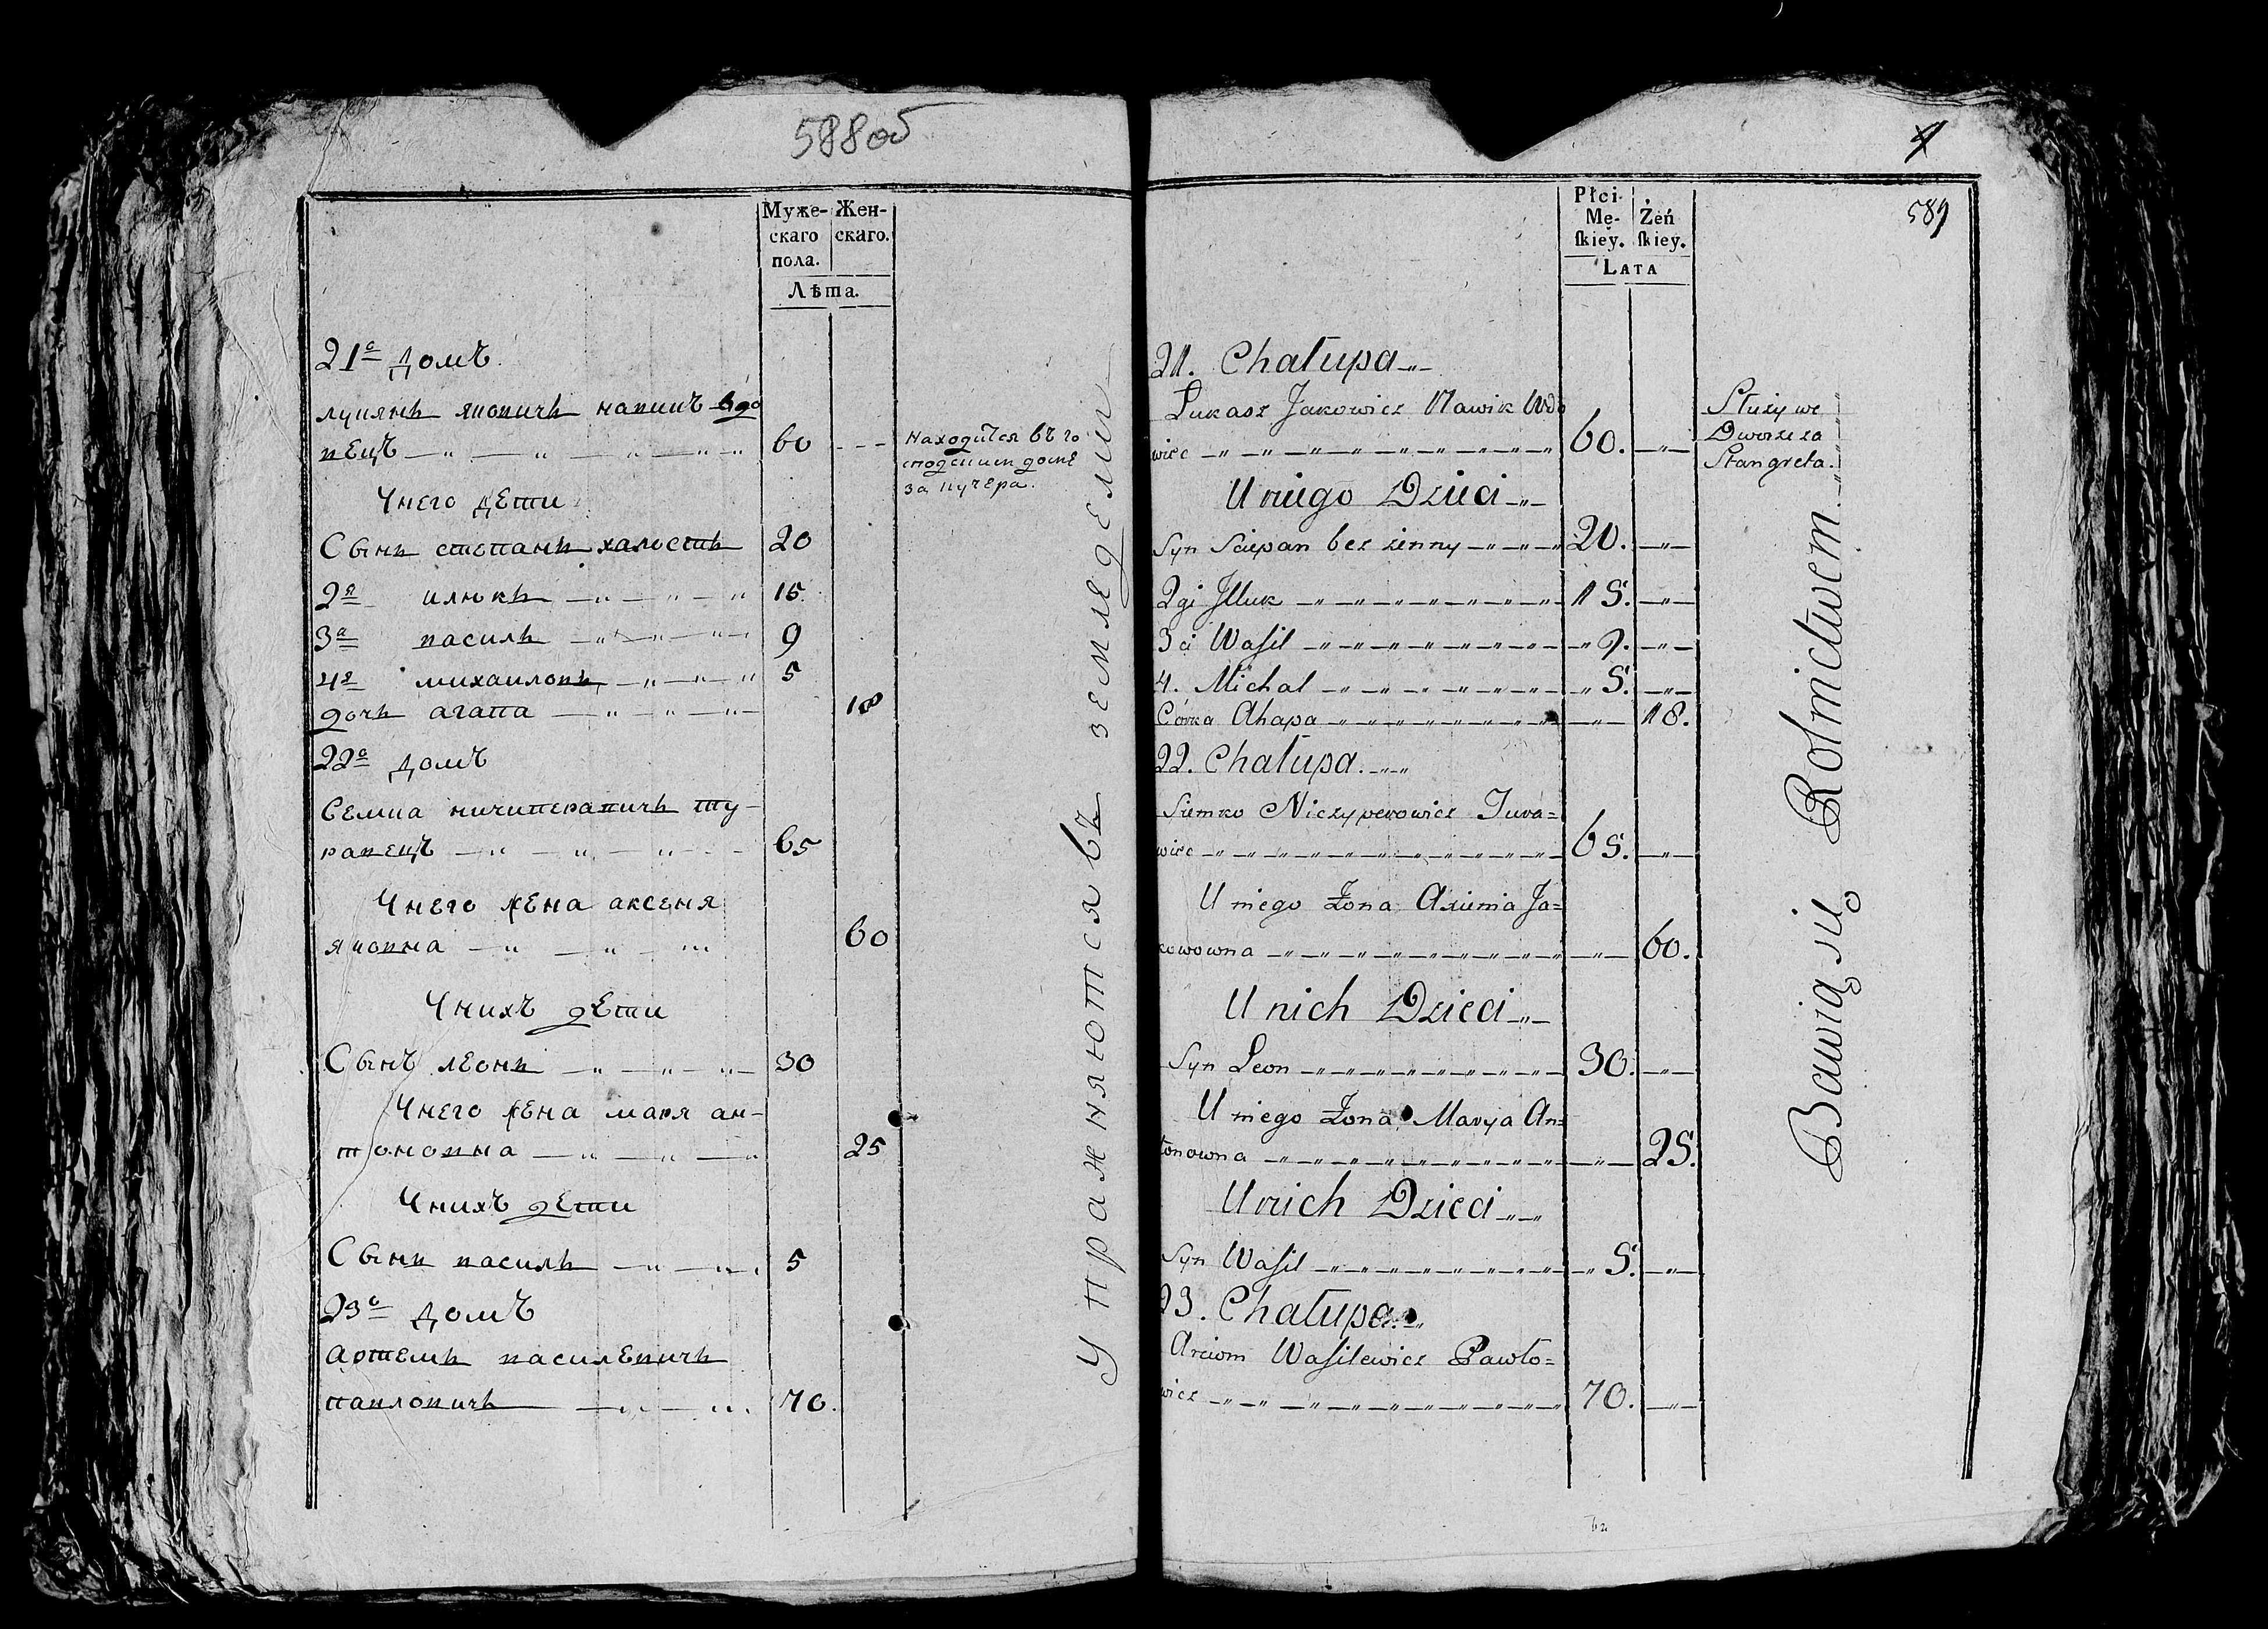 588об
Муже-
скаго
пола.
Жен-
скаго.
Лѣта.
21е домъ
лукянъ яковичъ навикъ вдо
вецъ — „ — „ — „ — „ „ 60 - - -
Находится въ го
сподскимъ доме
за кучера.
Унего дети
Сынъ степанъ халостъ 20
2й илюкъ — „ — „ — „ 15
3й василь — „ — „ — „ 9
4й михаиловъ — „ — „ „ 5
дочь агапа — „ — „ — 18
22е домъ
Семка ничиперавичъ ту-
равецъ — „ — „ — „ — 65
Унего жена аксеня
яковна — „ — „ — „ 60
Унихъ дети
Сынъ леонъ — „ — „ — „ 30
Унего жена маря ан-
тоновна — „ — „ — „ 25
Унихъ дети
Сынъ василь — „ — „ 5
23е домъ
Артемъ василевичъ
павловичъ — „ — „ 70.
Упражняются въ земледелии
4
589
Płci
Mę-
ſkiey.
Żeń
ſkiey.
LATA
21. Chałupa „
Łukasz Jakowicz Nawik Wdo
wiec — „ — „ — „ — „ 60. — „ —
Służy we
Dworze za
Stangreta.
U niego Dzieci „
Syn Sciepan bez żenny — „ — „ 20. — „ —
2gi Jlluk — „ — „ — „ — „ 15. — „ —
3ci Waſil — „ — „ — „ — „ 9. — „ —
4. Michał — „ — „ — „ — „ 5. — „ —
Córka Ahapa — „ — „ — „ — „ — 18.
22. Chałupa. „
Siemko Niczyperowicz Tura=
wiec — „ — „ — „ — „ 65. — „ —
U niego Żona Axienia Ja=
kowowna — „ — „ — „ — „ — 60.
U nich Dzieci „
Syn Leon — „ — „ — „ — „ 30. — „ —
U niego Żona Marya An=
tonowna — „ — „ — „ — „ — 25.
U nich Dzieci „
Syn Waſil — „ — „ — „ — „ 5. — „ —
23. Chałupa. „
Arciom Waſilewicz Pawło=
wicz — „ — „ — „ — „ 70. — „ —
Bawią się Rolnictwem.